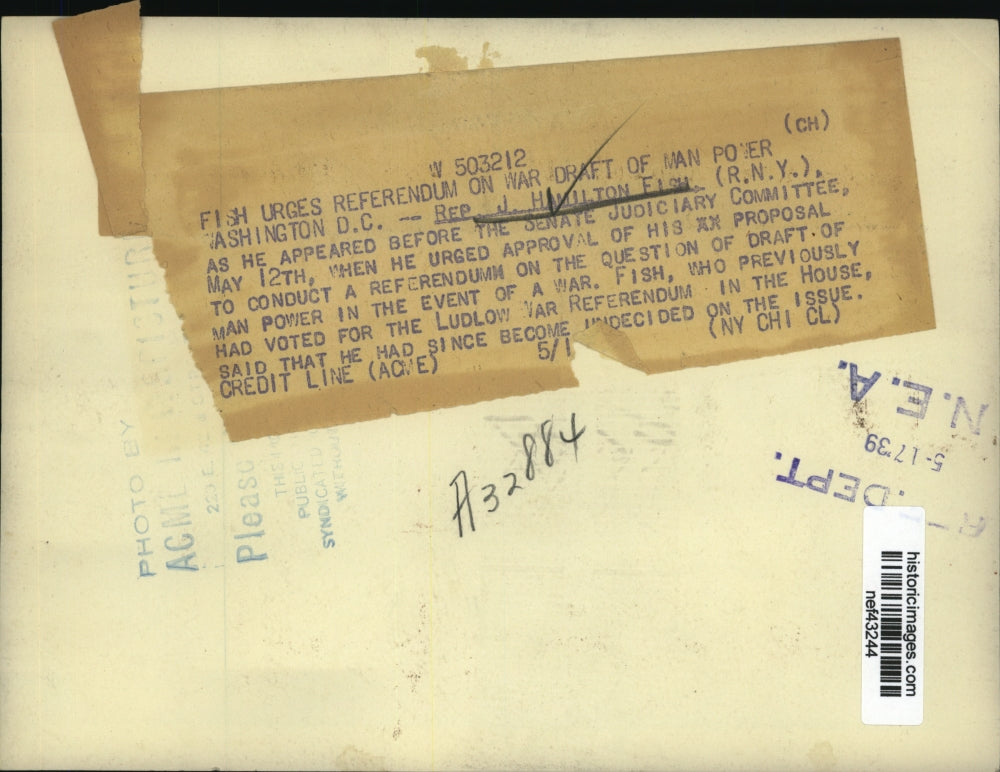 (CH)
W 503212
FISH URGES REFERENDUM ON WAR DRAFT OF MAN POWER
WASHINGTON D.C. -- REP. J. HAMILTON FISH (R.N.Y.),
AS HE APPEARED BEFORE THE SENATE JUDICIARY COMMITTEE,
MAY 12TH, WHEN HE URGED APPROVAL OF HIS XX PROPOSAL
TO CONDUCT A REFERENDUMM ON THE QUESTION OF DRAFT OF
MAN POWER IN THE EVENT OF A WAR. FISH, WHO PREVIOUSLY
HAD VOTED FOR THE LUDLOW WAR REFERENDUM IN THE HOUSE,
SAID THAT HE HAD SINCE BECOME UNDECIDED ON THE ISSUE.
CREDIT LINE (ACME) 5/1 (NY CHI CL)
A32884
N.E.A.
5-17'39
DEPT.
PHOTO BY
ACME
Please
PUBLIC
SYNDICATED
historicimages.com
nef43244